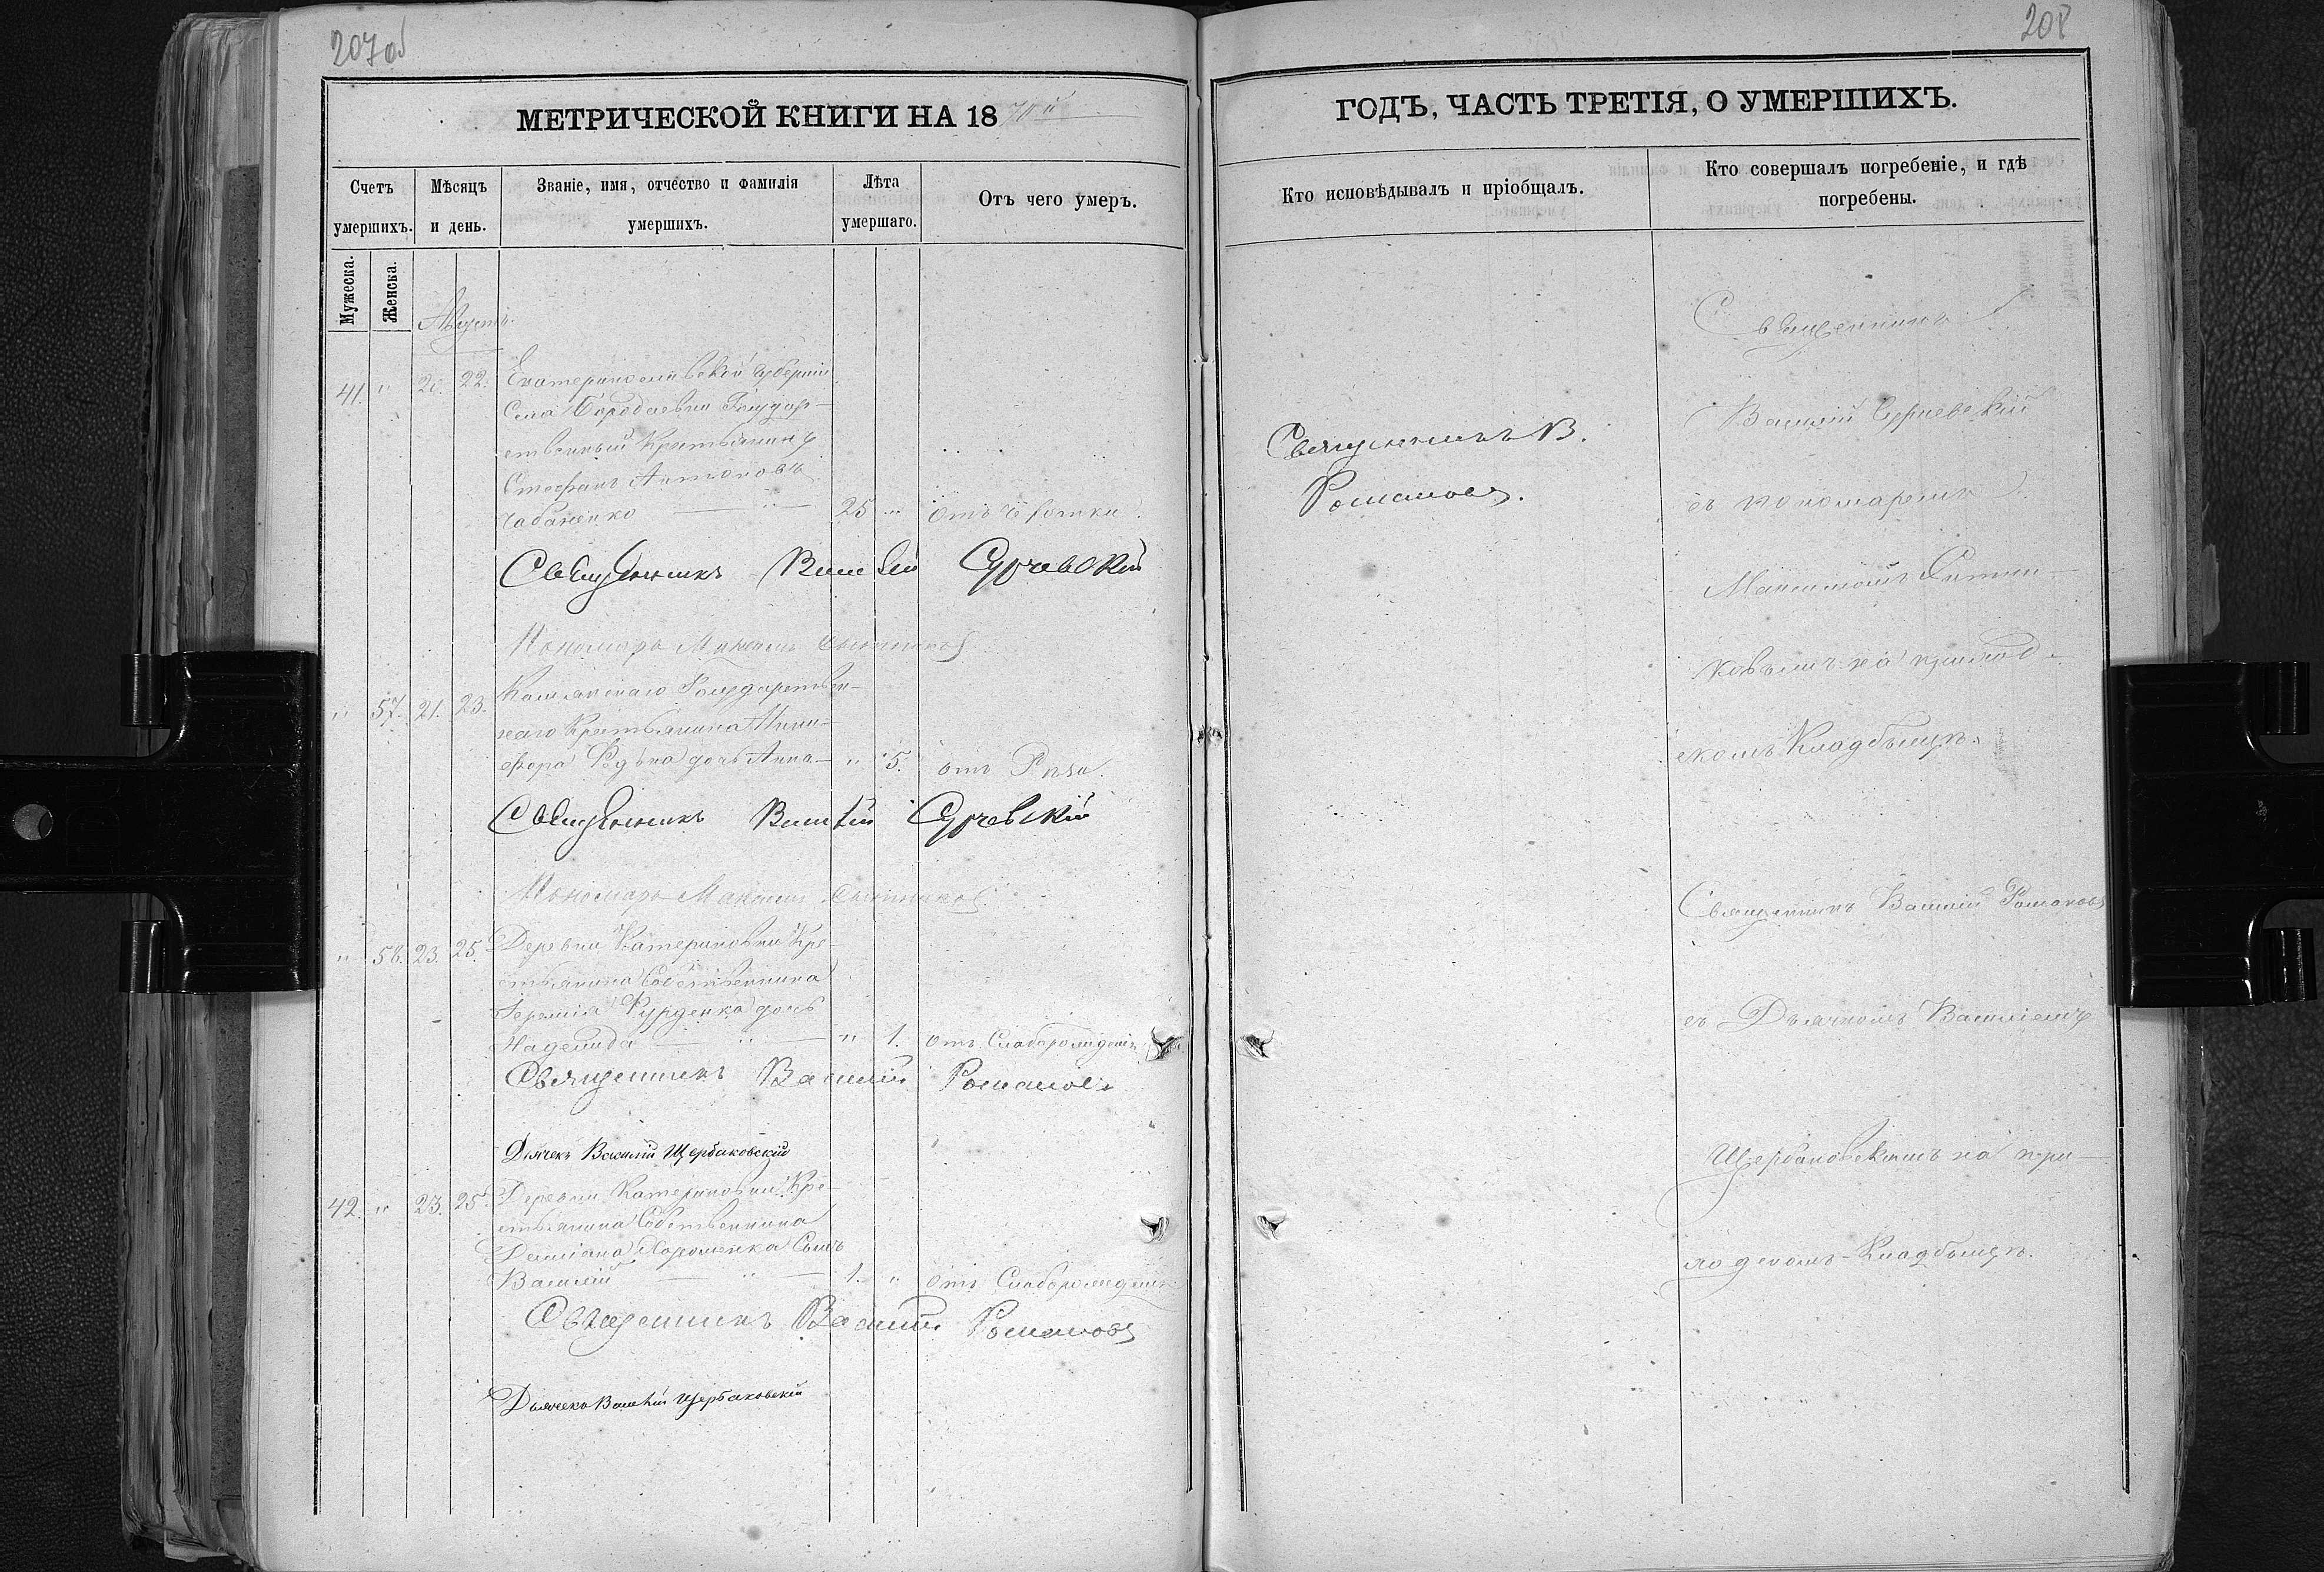 207 об
208
МЕТРИЧЕСКОЙ КНИГИ НА 18 70 й
ГОДЪ, ЧАСТЬ ТРЕТІЯ, О УМЕРШИХЪ.
Счетъ умершихъ.
Мѣсяцъ и день.
Званіе, имя, отчество и фамилія умершихъ.
Лѣта умершаго.
Отъ чего умеръ.
Кто исповѣдывалъ и пріобщалъ.
Кто совершалъ погребеніе, и гдѣ погребены.
Мужеска.
Женска.
Августъ.
41. " 20. 22. Екатеринославской губерніи
Села Бородаевки Государ-
ственный Крестьянинъ
Стефанъ Антоновъ
Чабаненко — " — 25 " отъ Чахотки
Священникъ Василій
Пономарь Максимъ
" 57. 21. 23. Государствен-
наго Крестьянина Ники-
фора дочь Анна — " 5. отъ
Священникъ Василій
Пономарь Максимъ
" 58. 23. 25. Деревни Катериновки Кре-
стьянина Собственника
Іереміи дочь
Надежда — " — " 1. отъ Слаборожденія
Священникъ Василій Романовъ
Дьячекъ Василій Щербаковскій
42. " 23. 25. Деревни Катериновки Кре-
стьянина Собственника
Даміана Хороменка Сынъ
Василій — " — 1. " отъ Слаборожденія
Священникъ Василій Романовъ
Дьячекъ Василій Щербаковскій
Священникъ В.
Романовъ.
Священникъ
Василій
съ пономаремъ
Максимомъ
на приход-
скомъ Кладбищѣ.
Священникъ Василій Романовъ
съ Дьячкомъ Василіемъ
Щербаковскимъ на при-
ходскомъ Кладбищѣ.